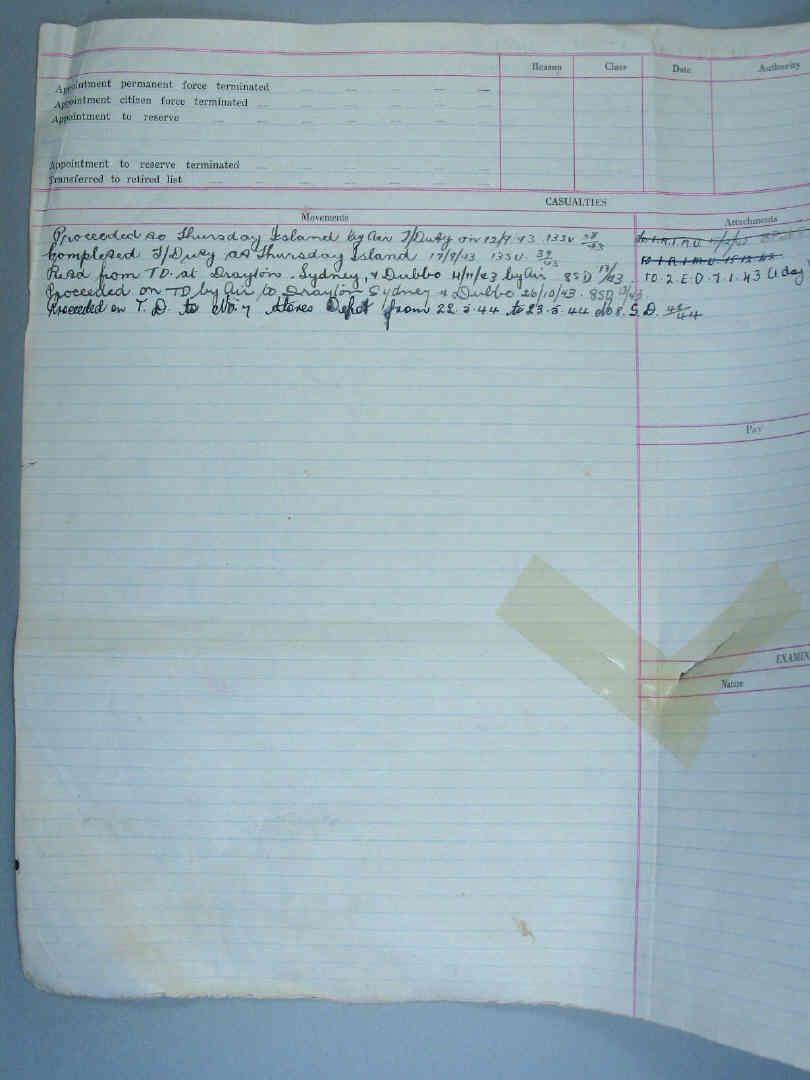 Reason Class Date Authority
Appointment permanent force terminated
Appointment citizen force terminated
Appointment to reserve
Appointment to reserve terminated
Transferred to retired list
CASUALTIES
Movements Attachments
Proceeded to Thursday Island by air T/Duty on 12/9/43 13SU
Completed T/Duty at Thursday Island 17/9/43 13SU 39/43
from TD. at Drayton. Sydney, & Dubbo 4/11/43 by air 8SD 13/43. TO 2 E.D. 7.1.43 (1 day)
Proceeded on TD by Air to Drayton Sydney & Dubbo 26/10/43. 8SD 13/43
Proceeded on T.D. to No. 7 Stores Depot from 22.3.44 to 23.3.44 No 8. S.D. /44
Pay
EXAMIN
Nature